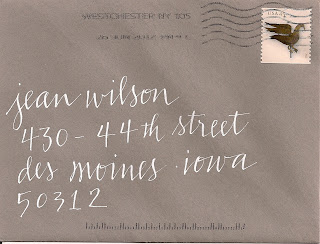 WESTCHESTER NY 105
USA
jean wilson
430 - 44th street
des moines · iowa
50312